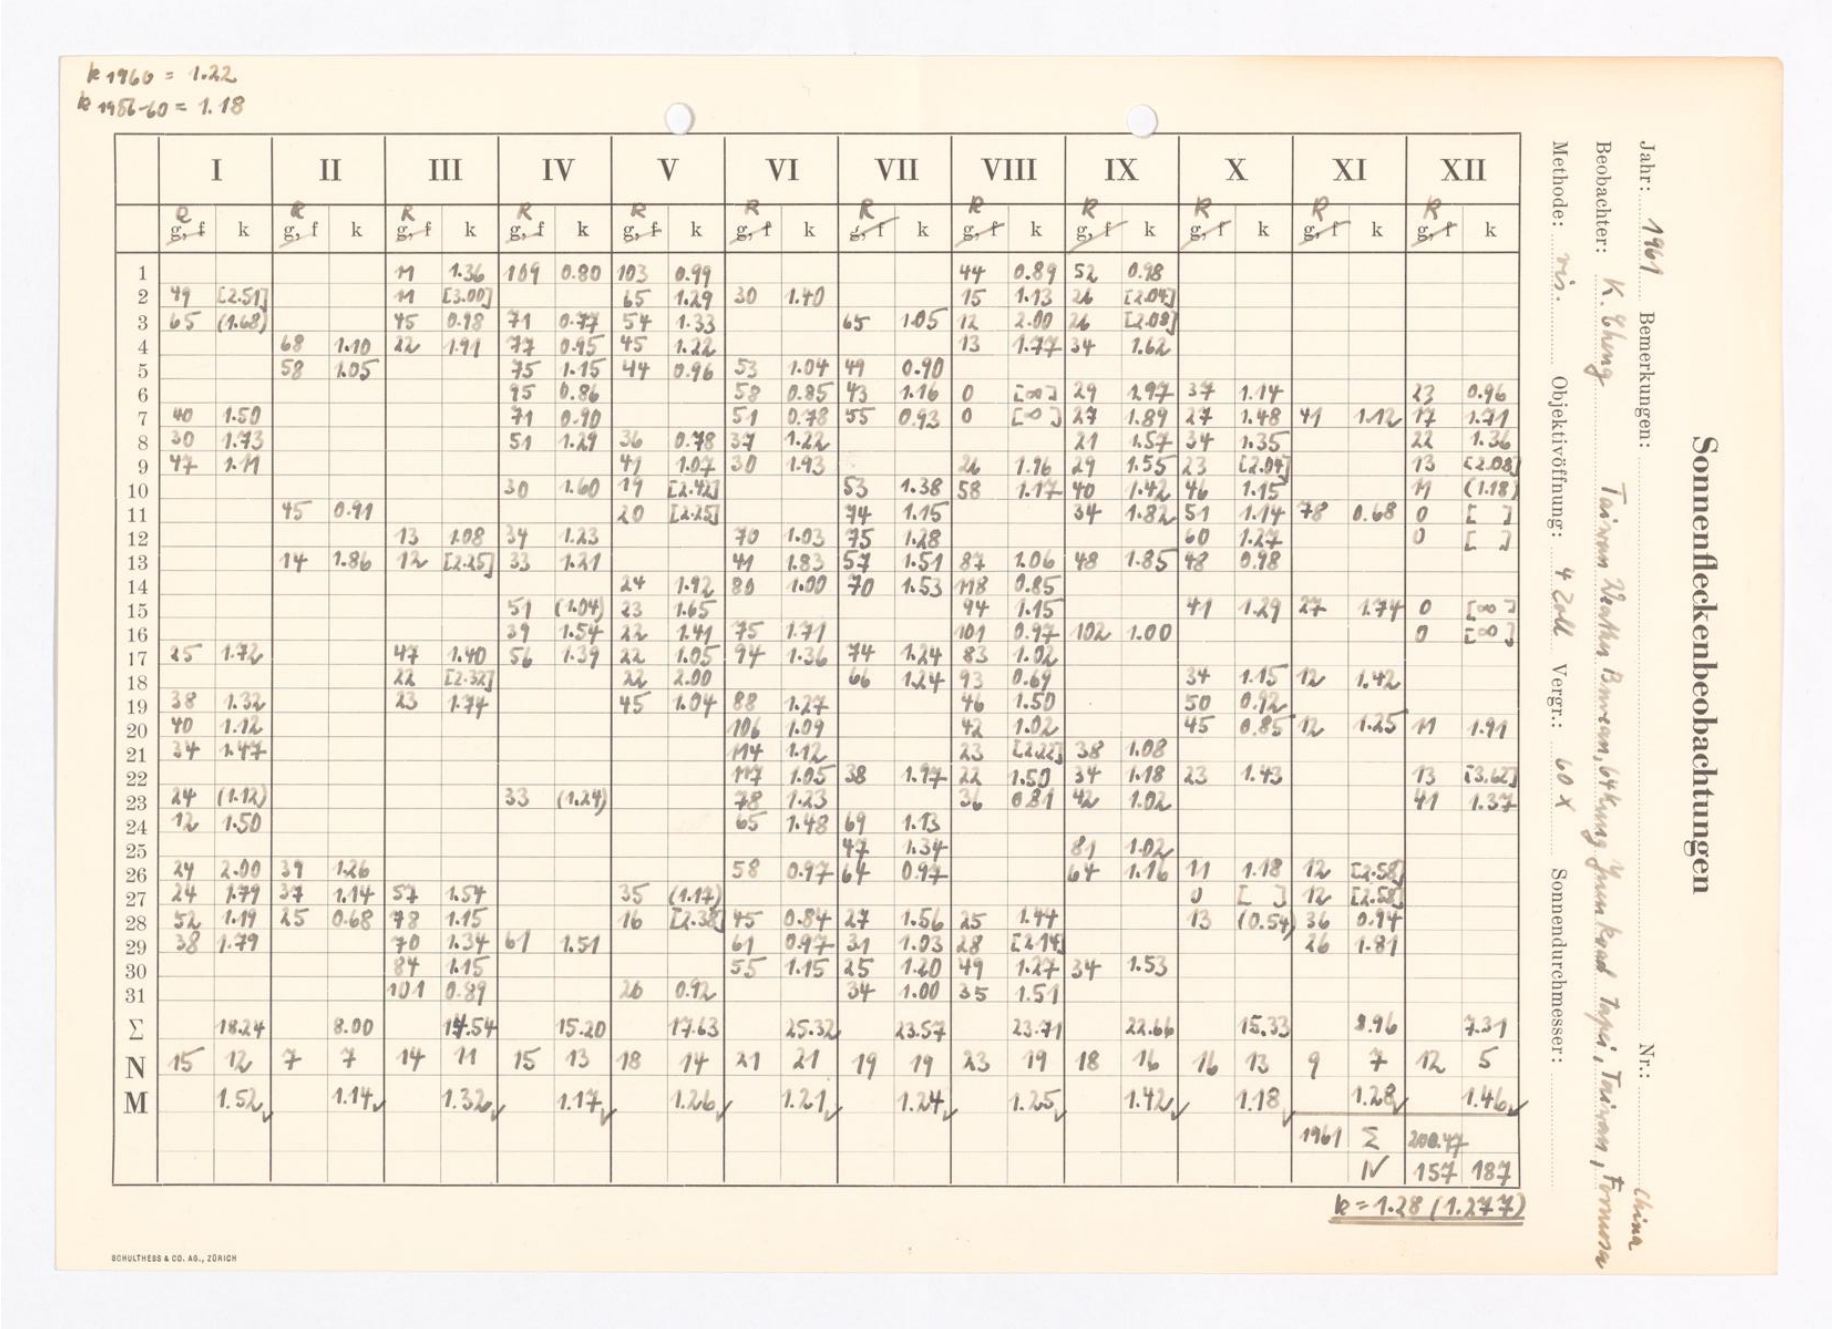 k 1960 = 1.22
k 1956-60 = 1.18
Sonnenfleckenbeobachtungen
Jahr: 1961 Bemerkungen: Nr.: China
Beobachter: K. Cheng Taiwan Weather Bureau, 64 Kung Yuan Road Taipei, Taiwan, Formosa
Methode: vis. Objektivöffnung: 4 Zoll Vergr.: 60 X Sonnendurchmesser:
I II III IV V VI VII VIII IX X XI XII
R R R R R R R R R R R R
g, f k g, f k g, f k g, f k g, f k g, f k g, f k g, f k g, f k g, f k g, f k g, f k
1 11 1.36 109 0.80 103 0.99 44 0.89 52 0.98
2 49 [2.51] 11 [3.00] 65 1.29 30 1.40 15 1.13 26 [2.04]
3 65 (1.68) 45 0.98 71 0.77 54 1.33 65 1.05 12 2.00 26 [2.08]
4 68 1.10 22 1.91 77 0.95 45 1.22 13 1.77 34 1.62
5 58 1.05 75 1.15 44 0.96 53 1.04 49 0.90
6 95 0.86 58 0.85 43 1.16 0 [∞] 29 1.97 37 1.14 23 0.96
7 40 1.50 71 0.90 51 0.78 55 0.93 0 [∞] 27 1.89 27 1.48 41 1.12 17 1.71
8 30 1.73 51 1.29 36 0.78 37 1.22 21 1.57 34 1.35 22 1.36
9 47 1.11 41 1.07 30 1.93 26 1.96 29 1.55 23 [2.04] 13 [2.08]
10 30 1.60 19 [2.42] 53 1.38 58 1.17 40 1.42 46 1.15 11 (1.18)
11 45 0.91 20 [2.25] 74 1.15 34 1.82 51 1.14 78 0.68 0 [ ]
12 13 1.08 34 1.23 70 1.03 75 1.28 60 1.27 0 [ ]
13 14 1.86 12 [2.25] 33 1.21 41 1.83 57 1.51 87 1.06 48 1.85 48 0.98
14 24 1.92 80 1.00 70 1.53 118 0.85
15 51 (1.04) 23 1.65 94 1.15 41 1.29 27 1.74 0 [∞]
16 39 1.54 22 1.41 75 1.71 101 0.97 102 1.00 0 [∞]
17 25 1.72 47 1.40 56 1.39 22 1.05 94 1.36 74 1.24 83 1.02
18 22 [2.32] 22 2.00 66 1.24 93 0.69 34 1.15 12 1.42
19 38 1.32 23 1.74 45 1.04 88 1.27 46 1.50 50 0.92
20 40 1.12 106 1.09 42 1.02 45 0.85 12 1.25 11 1.91
21 34 1.47 114 1.12 23 [2.22] 38 1.08
22 117 1.05 38 1.97 22 1.50 34 1.18 23 1.43 13 [3.62]
23 24 (1.12) 33 (1.24) 78 1.23 36 0.81 42 1.02 41 1.37
24 12 1.50 65 1.48 69 1.13
25 47 1.34 81 1.02
26 24 2.00 39 1.26 58 0.97 64 0.97 64 1.16 11 1.18 12 [2.58]
27 24 1.79 37 1.14 57 1.54 35 (1.17) 0 [ ] 12 [2.58]
28 52 1.19 25 0.68 78 1.15 16 [2.38] 45 0.84 27 1.56 25 1.44 13 (0.54) 36 0.94
29 38 1.79 70 1.34 61 1.51 61 0.97 31 1.03 28 [2.14] 26 1.81
30 84 1.15 55 1.15 25 1.20 49 1.27 34 1.53
31 101 0.89 26 0.92 34 1.00 35 1.51
Σ 18.24 8.00 14.54 15.20 17.63 25.32 23.57 23.71 22.66 15.33 8.96 7.31
N 15 12 7 7 14 11 15 13 18 14 21 21 19 19 23 19 18 16 16 13 9 7 12 5
M 1.52 1.14 1.32 1.17 1.26 1.21 1.24 1.25 1.42 1.18 1.28 1.46
1961 Σ 200.47
N 157 187
k = 1.28 (1.277)
SCHULTHESS & CO. AG., ZÜRICH